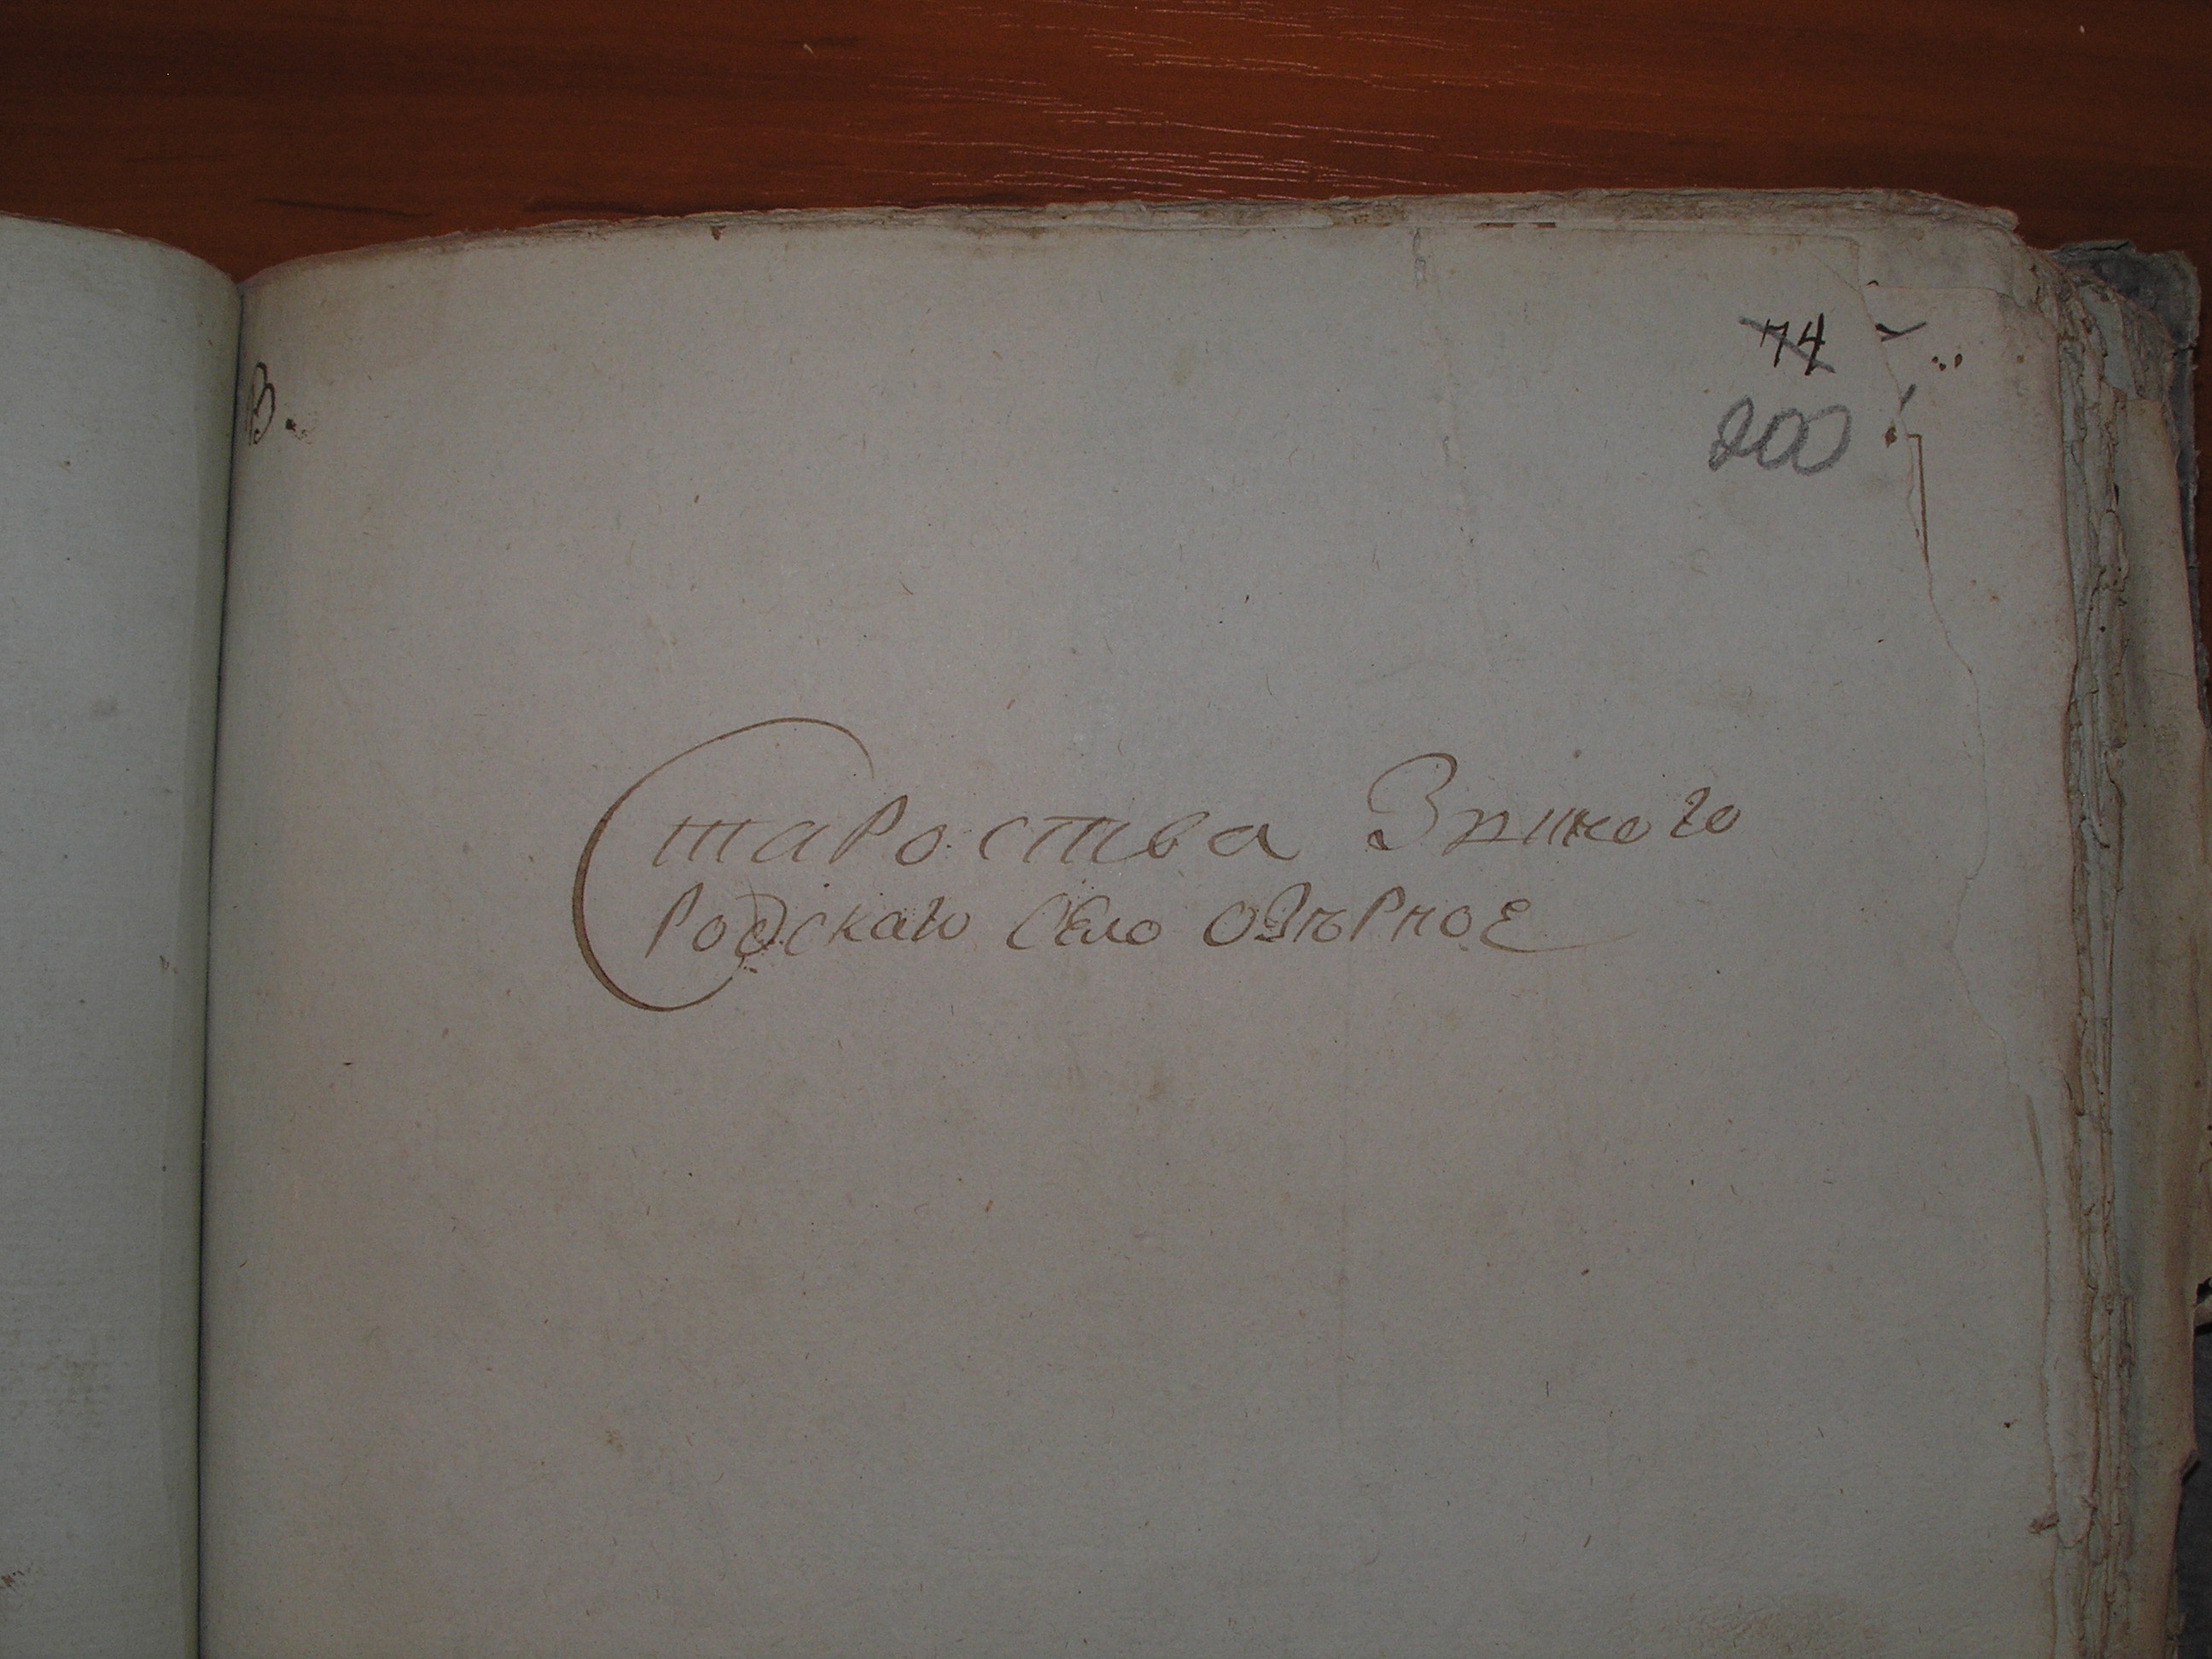 74
200
В.
Староства Звиного
родскаго Село Озѣрное